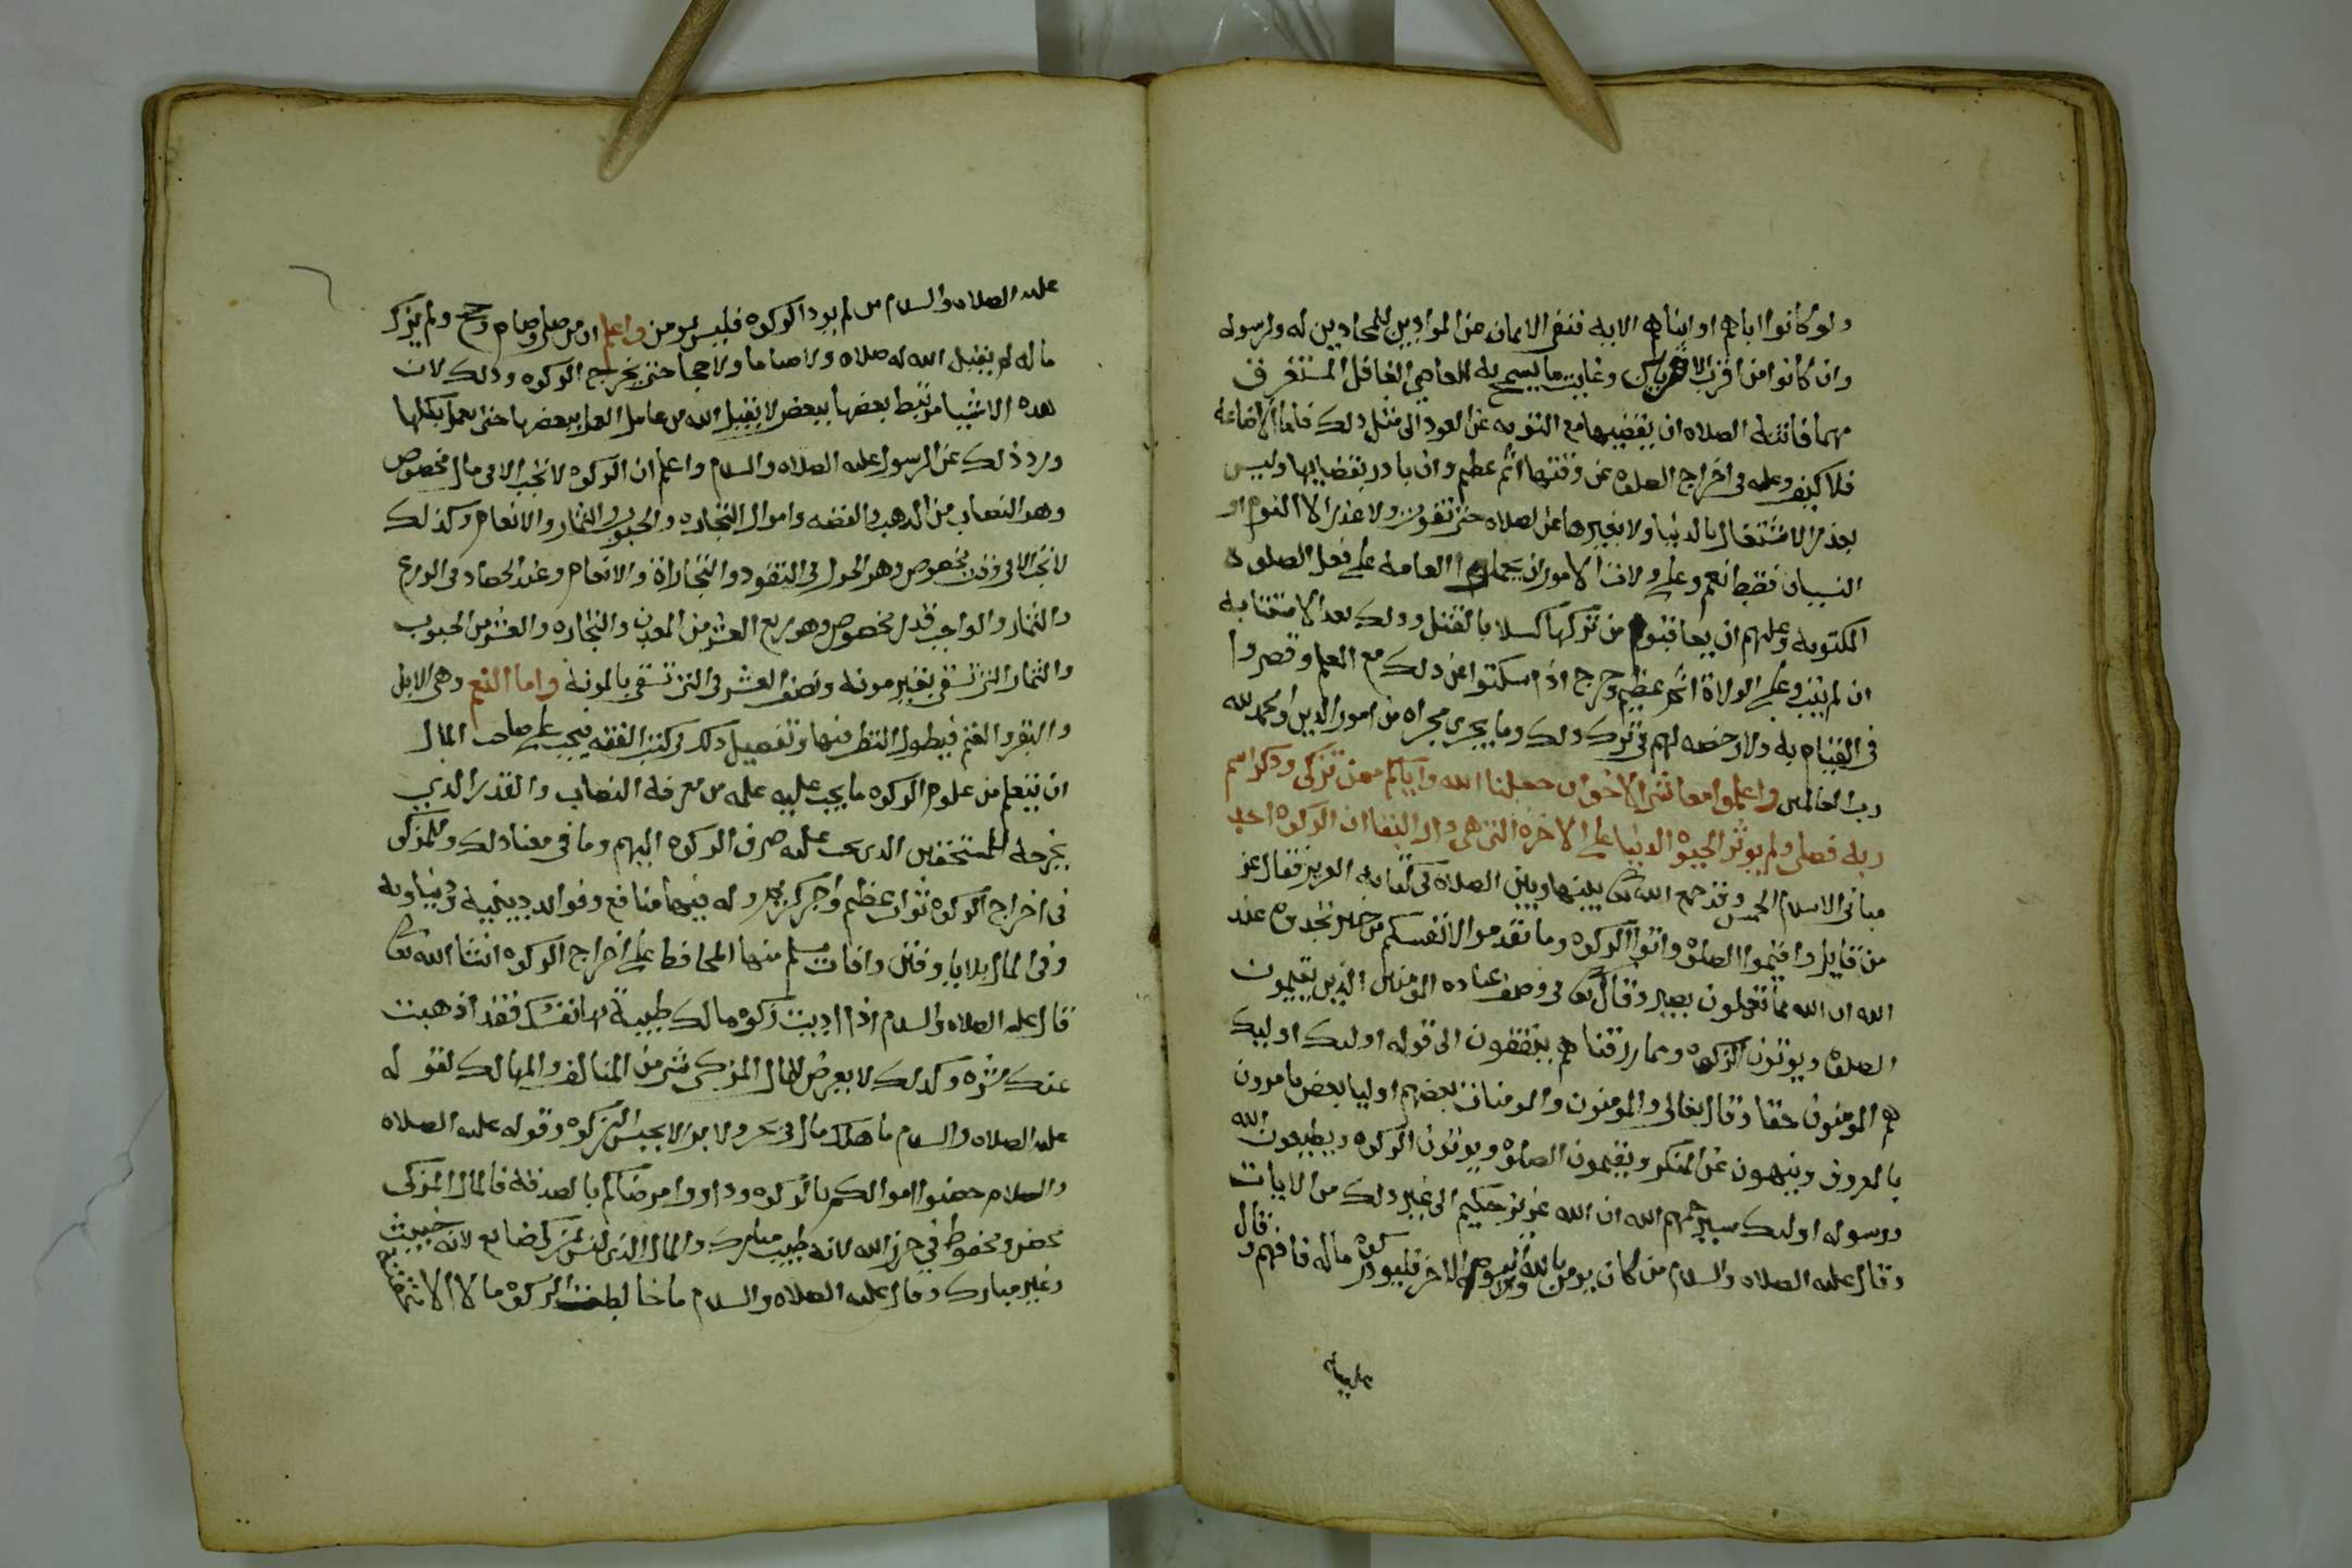 ولو كانوا اباهم او ابناهم الايه فنفى الايمان عن الموادين للمحادين له ولرسوله
وان كانوا من اقرب الاقربين وغايت ما يسمح به للعاصي الغافل المستغرق
مهما فاتته الصلاه ان يقضيها مع التوبه عن العود الى مثل ذلك فاما الاضاعة
فلا كيف وعليه في اخراج الصلوة عن وقتها اثم عظيم وان بادر بقضايها وليس
بعذر الاشتغال بالدنيا ولا بغيرها عن الصلاه حتى تفوت ولا عذر الا النوم او
النسيان فقط نعم وعلى ولاة الامور ان يحملوا العامه على فعل الصلوة
المكتوبه وعليهم ان يعاقبوا من تركها كسلا بالقتل وذلك بعد الاستتابه
ان لم يتب وعلى الولاة اثم عظيم وحرج اذا سكتوا عن ذلك مع العلم وقصروا
في القيام به ولا رخصه لهم في ترك ذلك وما يجري مجراه من امور الدين والحمد لله
رب العالمين واعلموا معاشر الاخوان جعلنا الله واياكم ممن تزكى وذكر اسم
ربه فصلى ولم يوثر الحيوة الدنيا على الاخرة التي هي دار البقا ان الزكوة احد
مباني الاسلام الخمس وقد جمع الله تعا بينها وبين الصلاه في كتابه العزيز فقال عز
من قايل واقيموا الصلوة واتوا الزكوه وما تقدموا لانفسكم من خير تجدوه عند
الله ان الله بما تعملون بصير وقال تعا في وصف عباده المومنين الذين يقيمون
الصلوة ويوتون الزكوة ومما رزقناهم ينفقون الى قوله اوليك اوليك
هم المومنون حقا وقال تعالى والمومنون والمومنات بعضهم اوليا بعض يامرون
بالمعروف وينهون عن المنكر ويقيمون الصلوة ويوتون الزكوه ويطيعون الله
ورسوله اوليك سيرحمهم الله ان الله عزيز حكيم الى غير ذلك من الايات
وقال عليه الصلاه والسلام من كان يومن بالله واليوم الاخر فليود زكوة ماله فافهم وقال
عليه
عليه الصلاه والسلام من لم يود الزكوه فليس بمومن واعلم ان من صلى وصام وحج ولم يزك
ماله لم يقبل الله له صلاه ولا صياما ولا حجا حتى يخرج الزكوه وذلك لان
هذه الاشيا مرتبط بعضها ببعض لا يقبل الله من عامل العمل ببعضها حتى يعمل بكلها
ورد ذلك عن الرسول عليه الصلاه والسلام واعلم ان الزكوة لا تجب الا في مال مخصوص
وهو النصاب من الذهب والفضه واموال التجاره والحبوب والثمار والانعام وكذلك
لا تجب الا في وقت مخصوص وهو الحول في النقود والتجاراة والانعام وعند الحصاد في الزرع
والثمار والواجب قدر مخصوص وهو ربع العشر من المعدن والتجاره والعشر من الحبوب
والثمار التي تسقى بغير مونه ونصف العشر في التي تسقى بالمونة واما النعم وهي الابل
والبقر والغنم فيطول النظر فيها وتفصيل ذلك في كتب الفقه فيجب على صاحب المال
ان يتعلم من علوم الزكوه ما يجب عليه علمه من معرفة النصاب والقدر الذي
يخرجه للمستحقين الذي يجب عليه صرف الزكوة اليهم وما في معنا ذلك وللمزكى
في اخراج الزكوة ثواب عظيم واجر كريم وله فيها منافع وفوايد دينية ودنياويه
وفي المال بلايا وفتن وافات يسلم منها المحافظ على اخراج الزكوه انشا الله تعا
قال عليه الصلاه والسلام اذا اديت زكوة مالك طيبةً بها نفسك فقد اذهبت
عنك شره وكذلك لا يعرض للمال المزكى شي من المتالف والمهالك لقوله
عليه الصلاه والسلام ما هلك مال في بحر ولا بر الا بحبس الزكوه وقوله عليه الصلاه
والسلام حصنوا اموالكم بالزكوه وداووا مرضاكم بالصدقة فالمال المزكى
محصن ومحفوظ في حرز الله لانه طيب مبارك والمال الذي ليس بمزكى ضايع لانه خبيث
وغير مبارك وقال عليه الصلاه والسلام ما خالطت الزكوة مالا الا